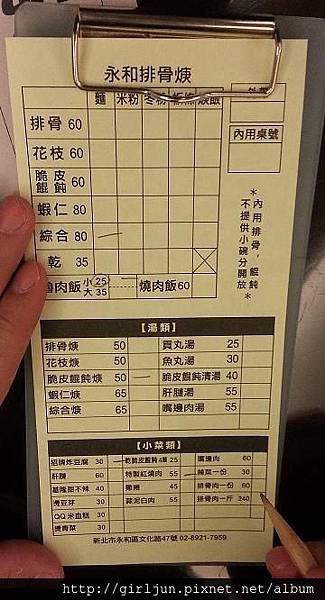 永和排骨焿
外帶
麵 米粉 冬粉 粄條 焿飯
內用桌號
排骨 60
花枝 60
脆皮餛飩 60
蝦仁 80
綜合 80
乾 35
魯肉飯 小25 大35 燒肉飯60
＊內用排骨，餛飩＊
不提供小碗分開放
【湯類】
排骨焿 50 貢丸湯 25
花枝焿 50 魚丸湯 30
脆皮餛飩焿 50 脆皮餛飩清湯 40
蝦仁焿 65 肝腱湯 55
綜合焿 65 嘴邊肉湯 55
【小菜類】
招牌炸豆腐 30 乾脆皮餛飩4顆 25 嘴邊肉 60
肝腱 60 特製紅燒肉 55 辣菜一份 30
基隆甜不辣 40 雞捲 45 排骨肉一份 60
燙豆芽 30 蒜泥白肉 55 排骨肉一斤 240
QQ米血糕 30
燙青菜 30
新北市永和區文化路47號 02-8921-7959
http://girljun.pixnet.net/album